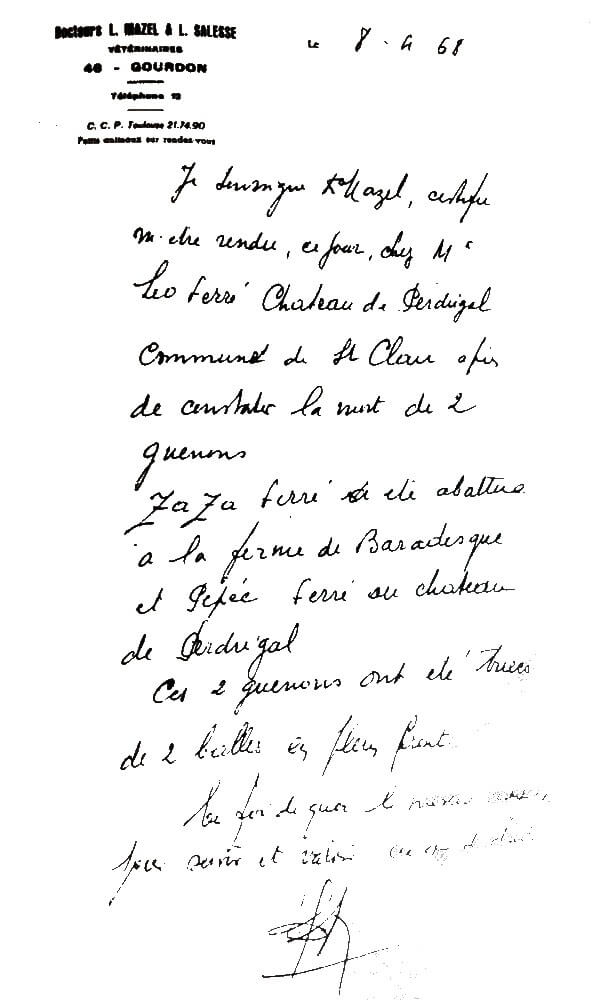 Docteurs L. MAZEL & L. SALESSE
VÉTÉRINAIRES
46 - GOURDON
Téléphone 12
C. C. P. Toulouse 21.74.90
Petits animaux sur rendez-vous
LE 8 - 4 68
Je soussigne Dr Mazel, certifie
m'etre rendu, ce jour, chez Mr
Leo Ferré Chateau de Perdrigal
Commune de St Clair afin
de constater la mort de 2
guenons
ZaZa Ferré a été abattue
a la ferme de Baradesque
et Pépée Ferré au chateau
de Perdrigal
Ces 2 guenons ont été tuees
de 2 balles en plein front.
En foi de quoi le
pour servir et valoir de droit